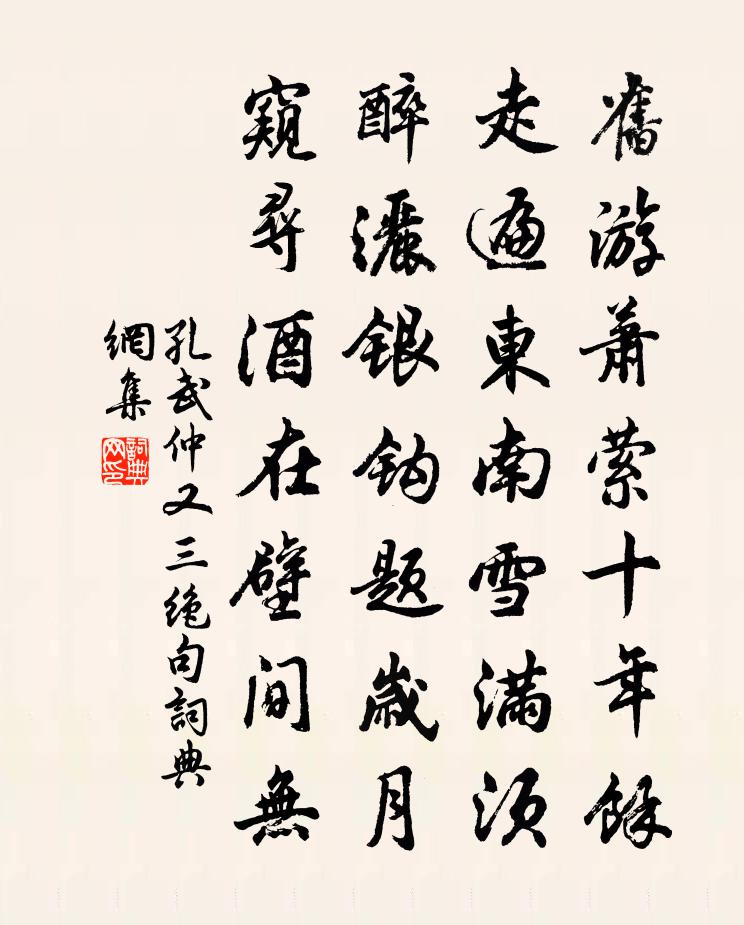 舊游蕭縈十年餘
走遍東南雪滿須
醉灑銀鈎題歲月
窺尋酒在壁間無
孔武仲又三絶句詞典
網集
詞典網印